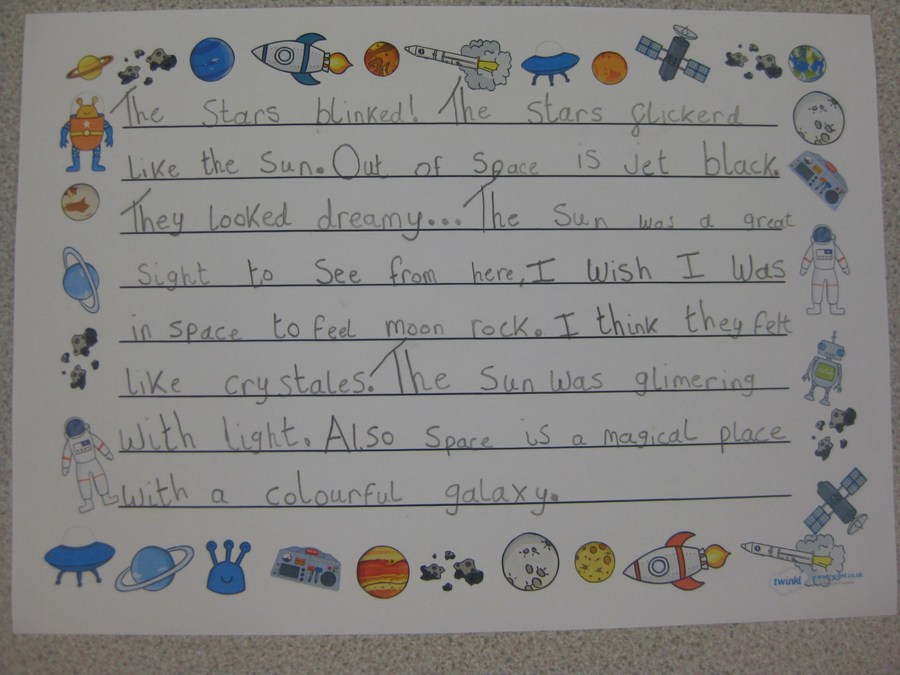 The Stars blinked! The stars flickerd
like the Sun. Out of space is jet black.
They looked dreamy... The Sun was a great
Sight to See from here, I wish I was
in space to feel moon rock. I think they felt
like crystales. The Sun was glimering
with light. Also space is a magical place
with a colourful galaxy.
twinkl